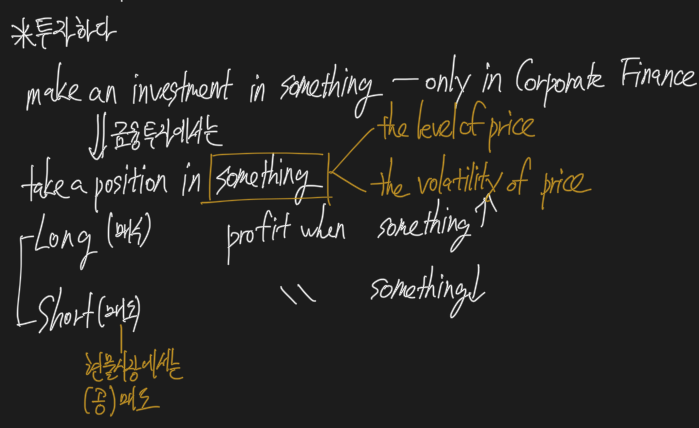 ※투자하다
make an investment in something — only in Corporate Finance
⇓ 금융투자에서는
the level of price
take a position in something
the volatility of price
Long (매수) profit when something↑
Short (매도) 〃 something↓
현물시장에서는
(공)매도